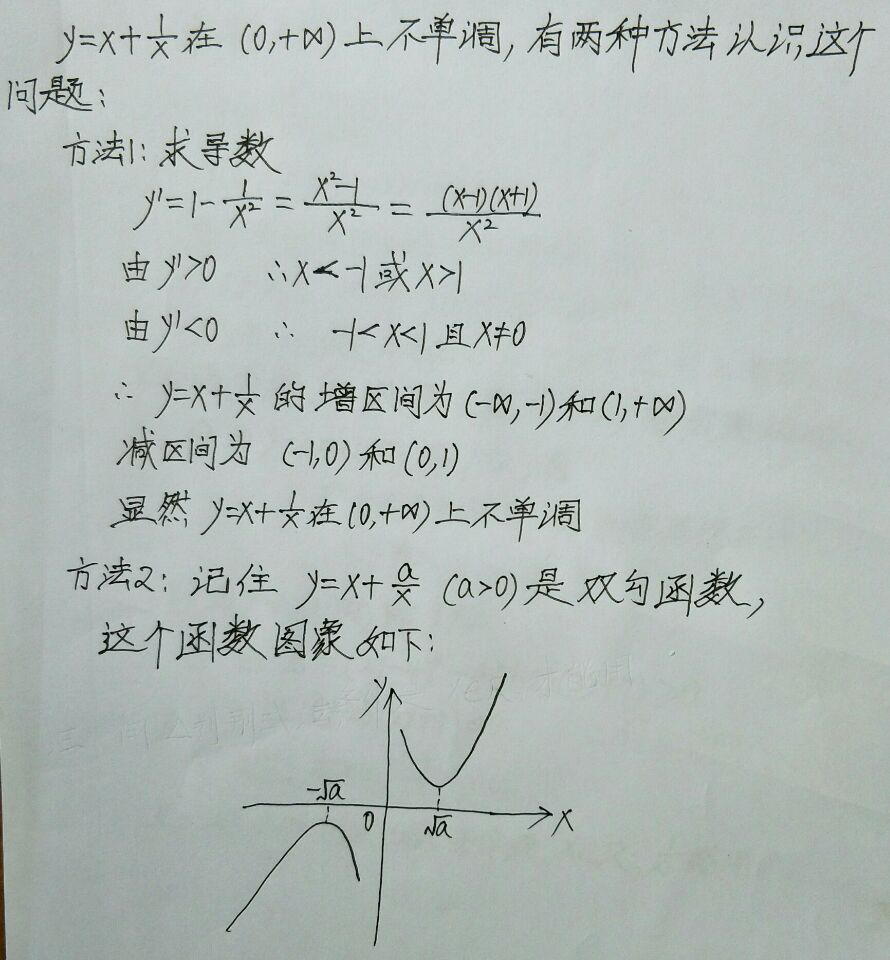 y=x+1/x在(0,+∞)上不单调,有两种方法认识这个
问题:
方法1:求导数
y'=1-1/x²=(x²-1)/x²=(x-1)(x+1)/x²
由y'>0 ∴x<-1或x>1
由y'<0 ∴ -1<x<1且x≠0
∴ y=x+1/x的增区间为(-∞,-1)和(1,+∞)
减区间为(-1,0)和(0,1)
显然y=x+1/x在(0,+∞)上不单调
方法2:记住 y=x+a/x (a>0)是双勾函数,
这个函数图象如下:
y
-√a
0 √a x